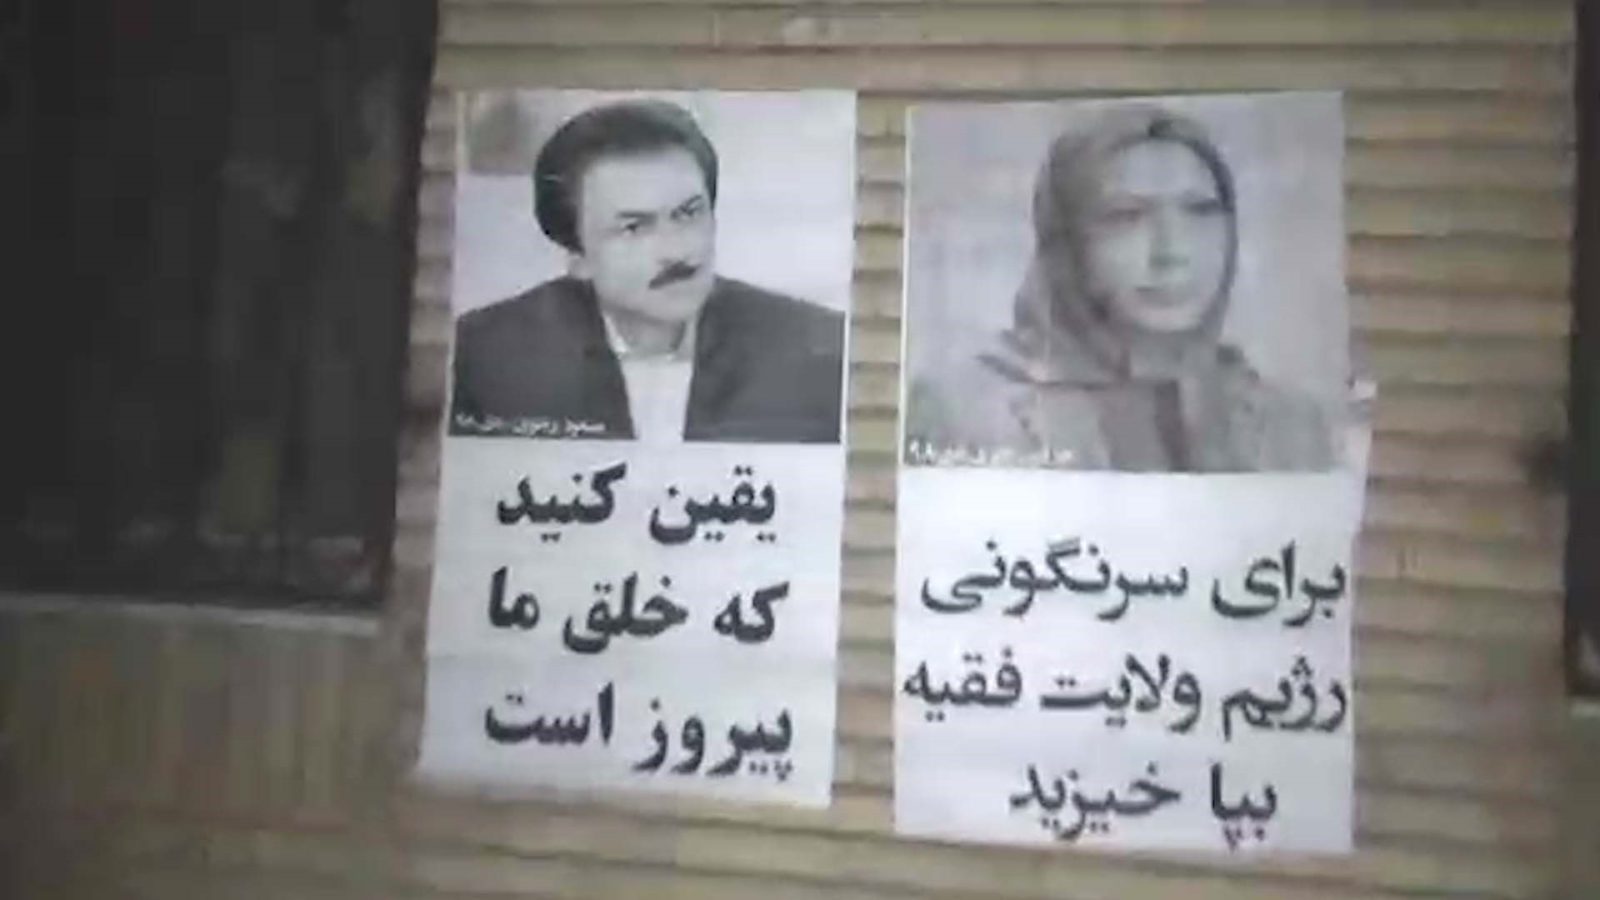 مسعود رجوی - دی ۹۸
یقین کنید
که خلق ما
پیروز است
دی ۹۸
برای سرنگونی
رژیم ولایت فقیه
بپا خیزید